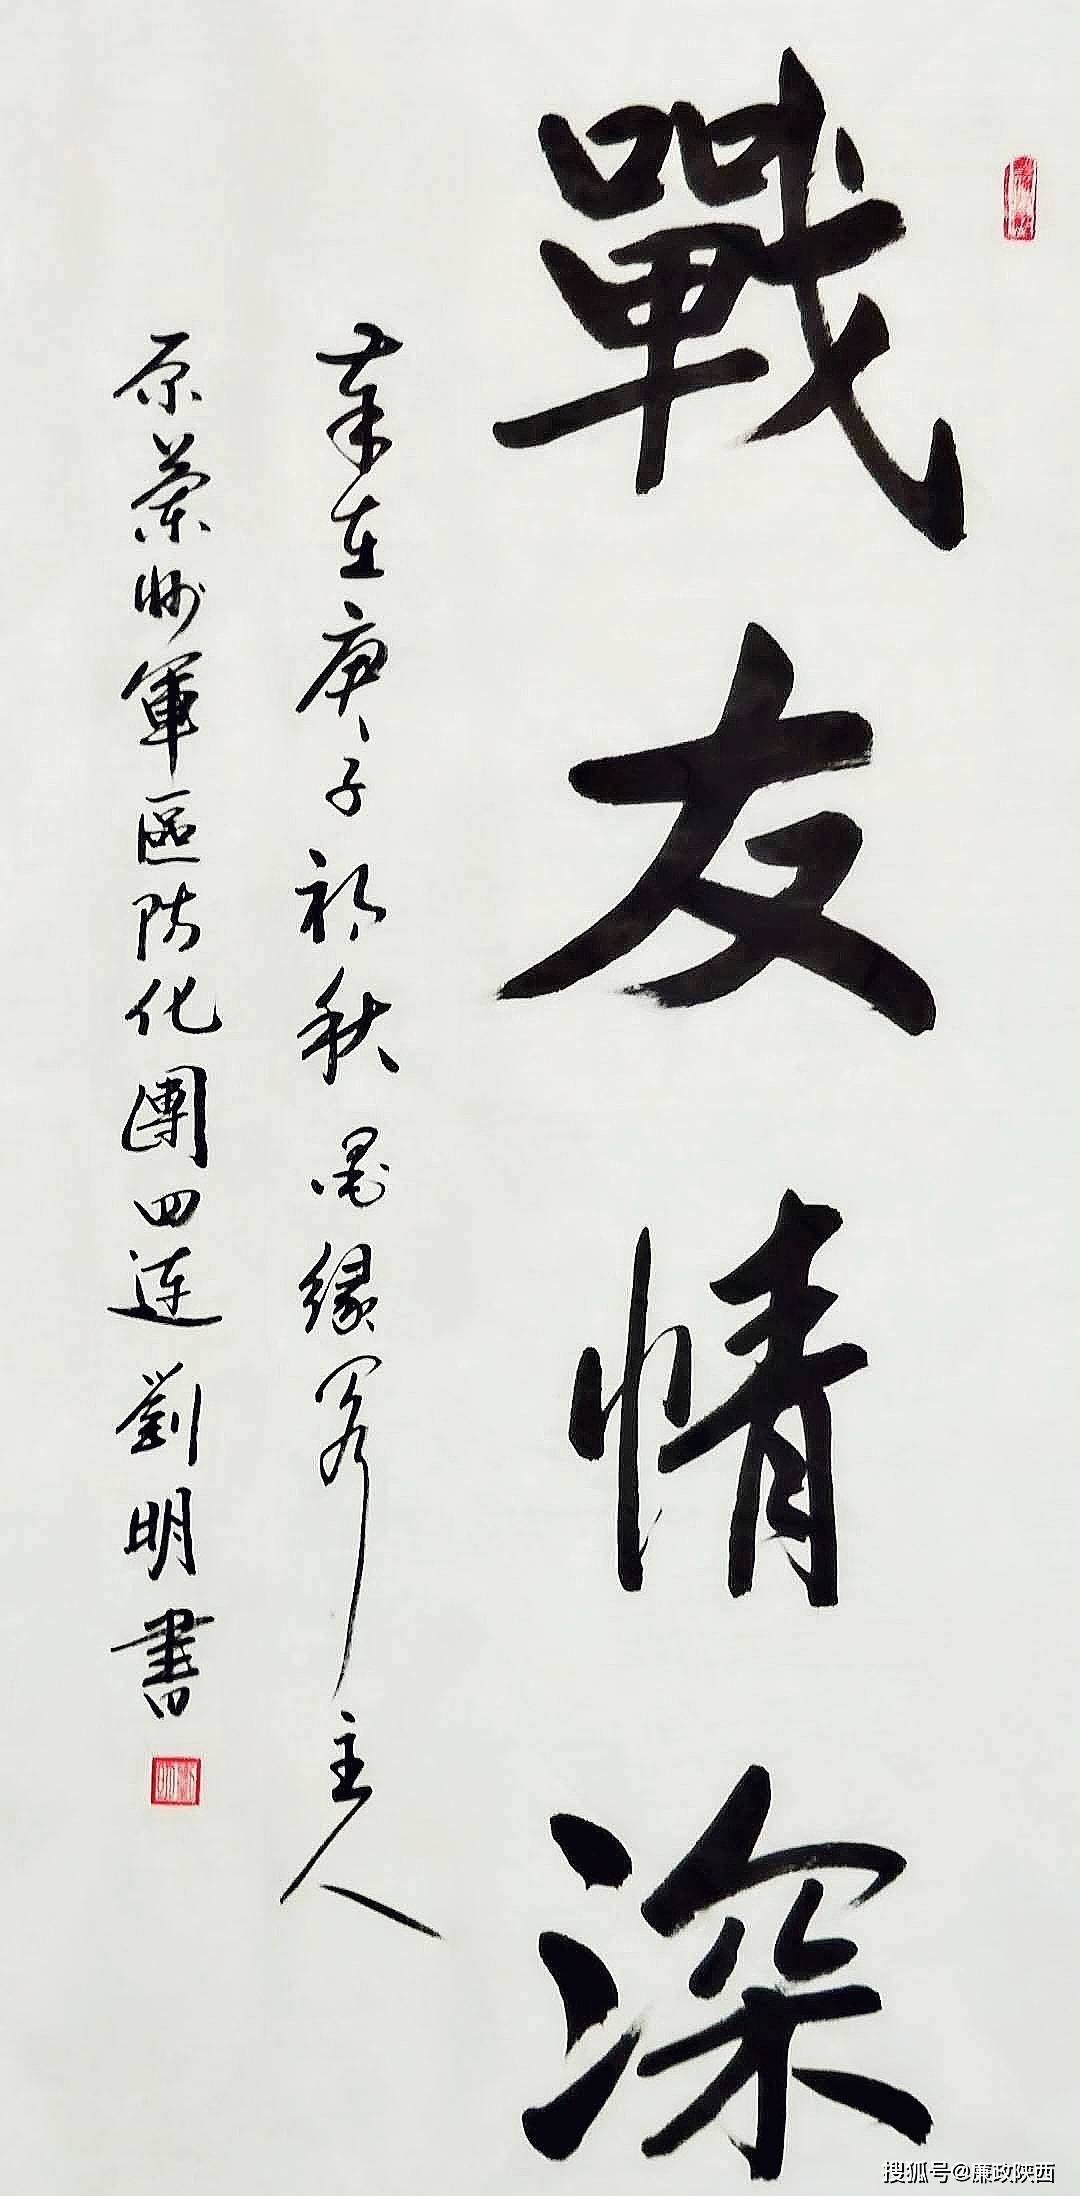 戰友情深
歲在庚子初秋墨緣閣主人
原蘭州軍區防化團四连劉明書
搜狐号@廉政陕西